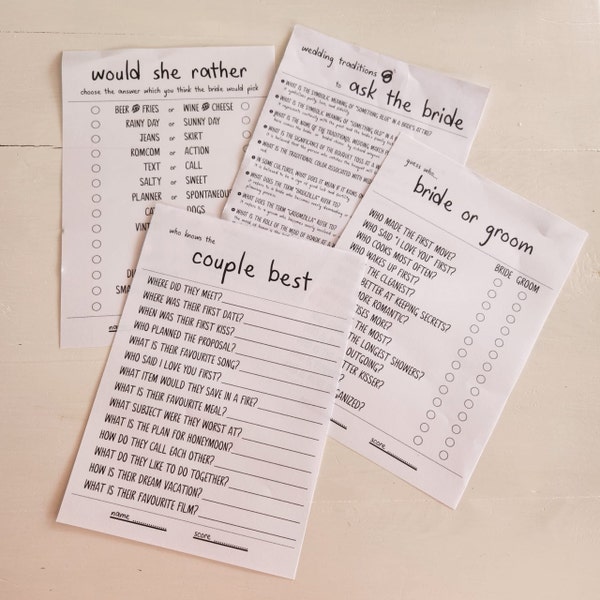 would she rather
choose the answer which you think the bride would pick
BEER & FRIES or WINE & CHEESE
RAINY DAY or SUNNY DAY
JEANS or SKIRT
ROMCOM or ACTION
TEXT or CALL
SALTY or SWEET
PLANNER or SPONTANEOUS
DOGS
name
wedding traditions
to ask the bride
WHAT IS THE SYMBOLIC MEANING OF "SOMETHING BLUE" IN A BRIDE'S ATTIRE?
WHAT IS THE SYMBOLIC MEANING OF "SOMETHING OLD" IN A
WHAT IS THE NAME OF THE TRADITIONAL WEDDING MARCH
WHAT IS THE SIGNIFICANCE OF THE BOUQUET TOSS AT A
WHAT IS THE TRADITIONAL COLOR ASSOCIATED WITH
IN SOME CULTURES, WHAT DOES IT MEAN IF IT RAINS ON
WHAT DOES THE TERM "BRIDEZILLA" REFER TO?
WHAT DOES THE TERM "GROOMZILLA" REFER TO?
WHAT IS THE ROLE OF THE MAID OF HONOR AT A
guess who...
bride or groom
BRIDE GROOM
WHO MADE THE FIRST MOVE?
WHO SAID "I LOVE YOU" FIRST?
WHO COOKS MOST OFTEN?
WHO WAKES UP FIRST?
THE CLEANEST?
BETTER AT KEEPING SECRETS?
MORE ROMANTIC?
MORE?
THE MOST?
THE LONGEST SHOWERS?
OUTGOING?
KISSER?
score
who knows the
couple best
WHERE DID THEY MEET?
WHERE WAS THEIR FIRST DATE?
WHEN WAS THEIR FIRST KISS?
WHO PLANNED THE PROPOSAL?
WHAT IS THEIR FAVOURITE SONG?
WHO SAID I LOVE YOU FIRST?
WHAT ITEM WOULD THEY SAVE IN A FIRE?
WHAT IS THEIR FAVOURITE MEAL?
WHAT SUBJECT WERE THEY WORST AT?
WHAT IS THE PLAN FOR HONEYMOON?
HOW DO THEY CALL EACH OTHER?
WHAT DO THEY LIKE TO DO TOGETHER?
HOW IS THEIR DREAM VACATION?
WHAT IS THEIR FAVOURITE FILM?
name score